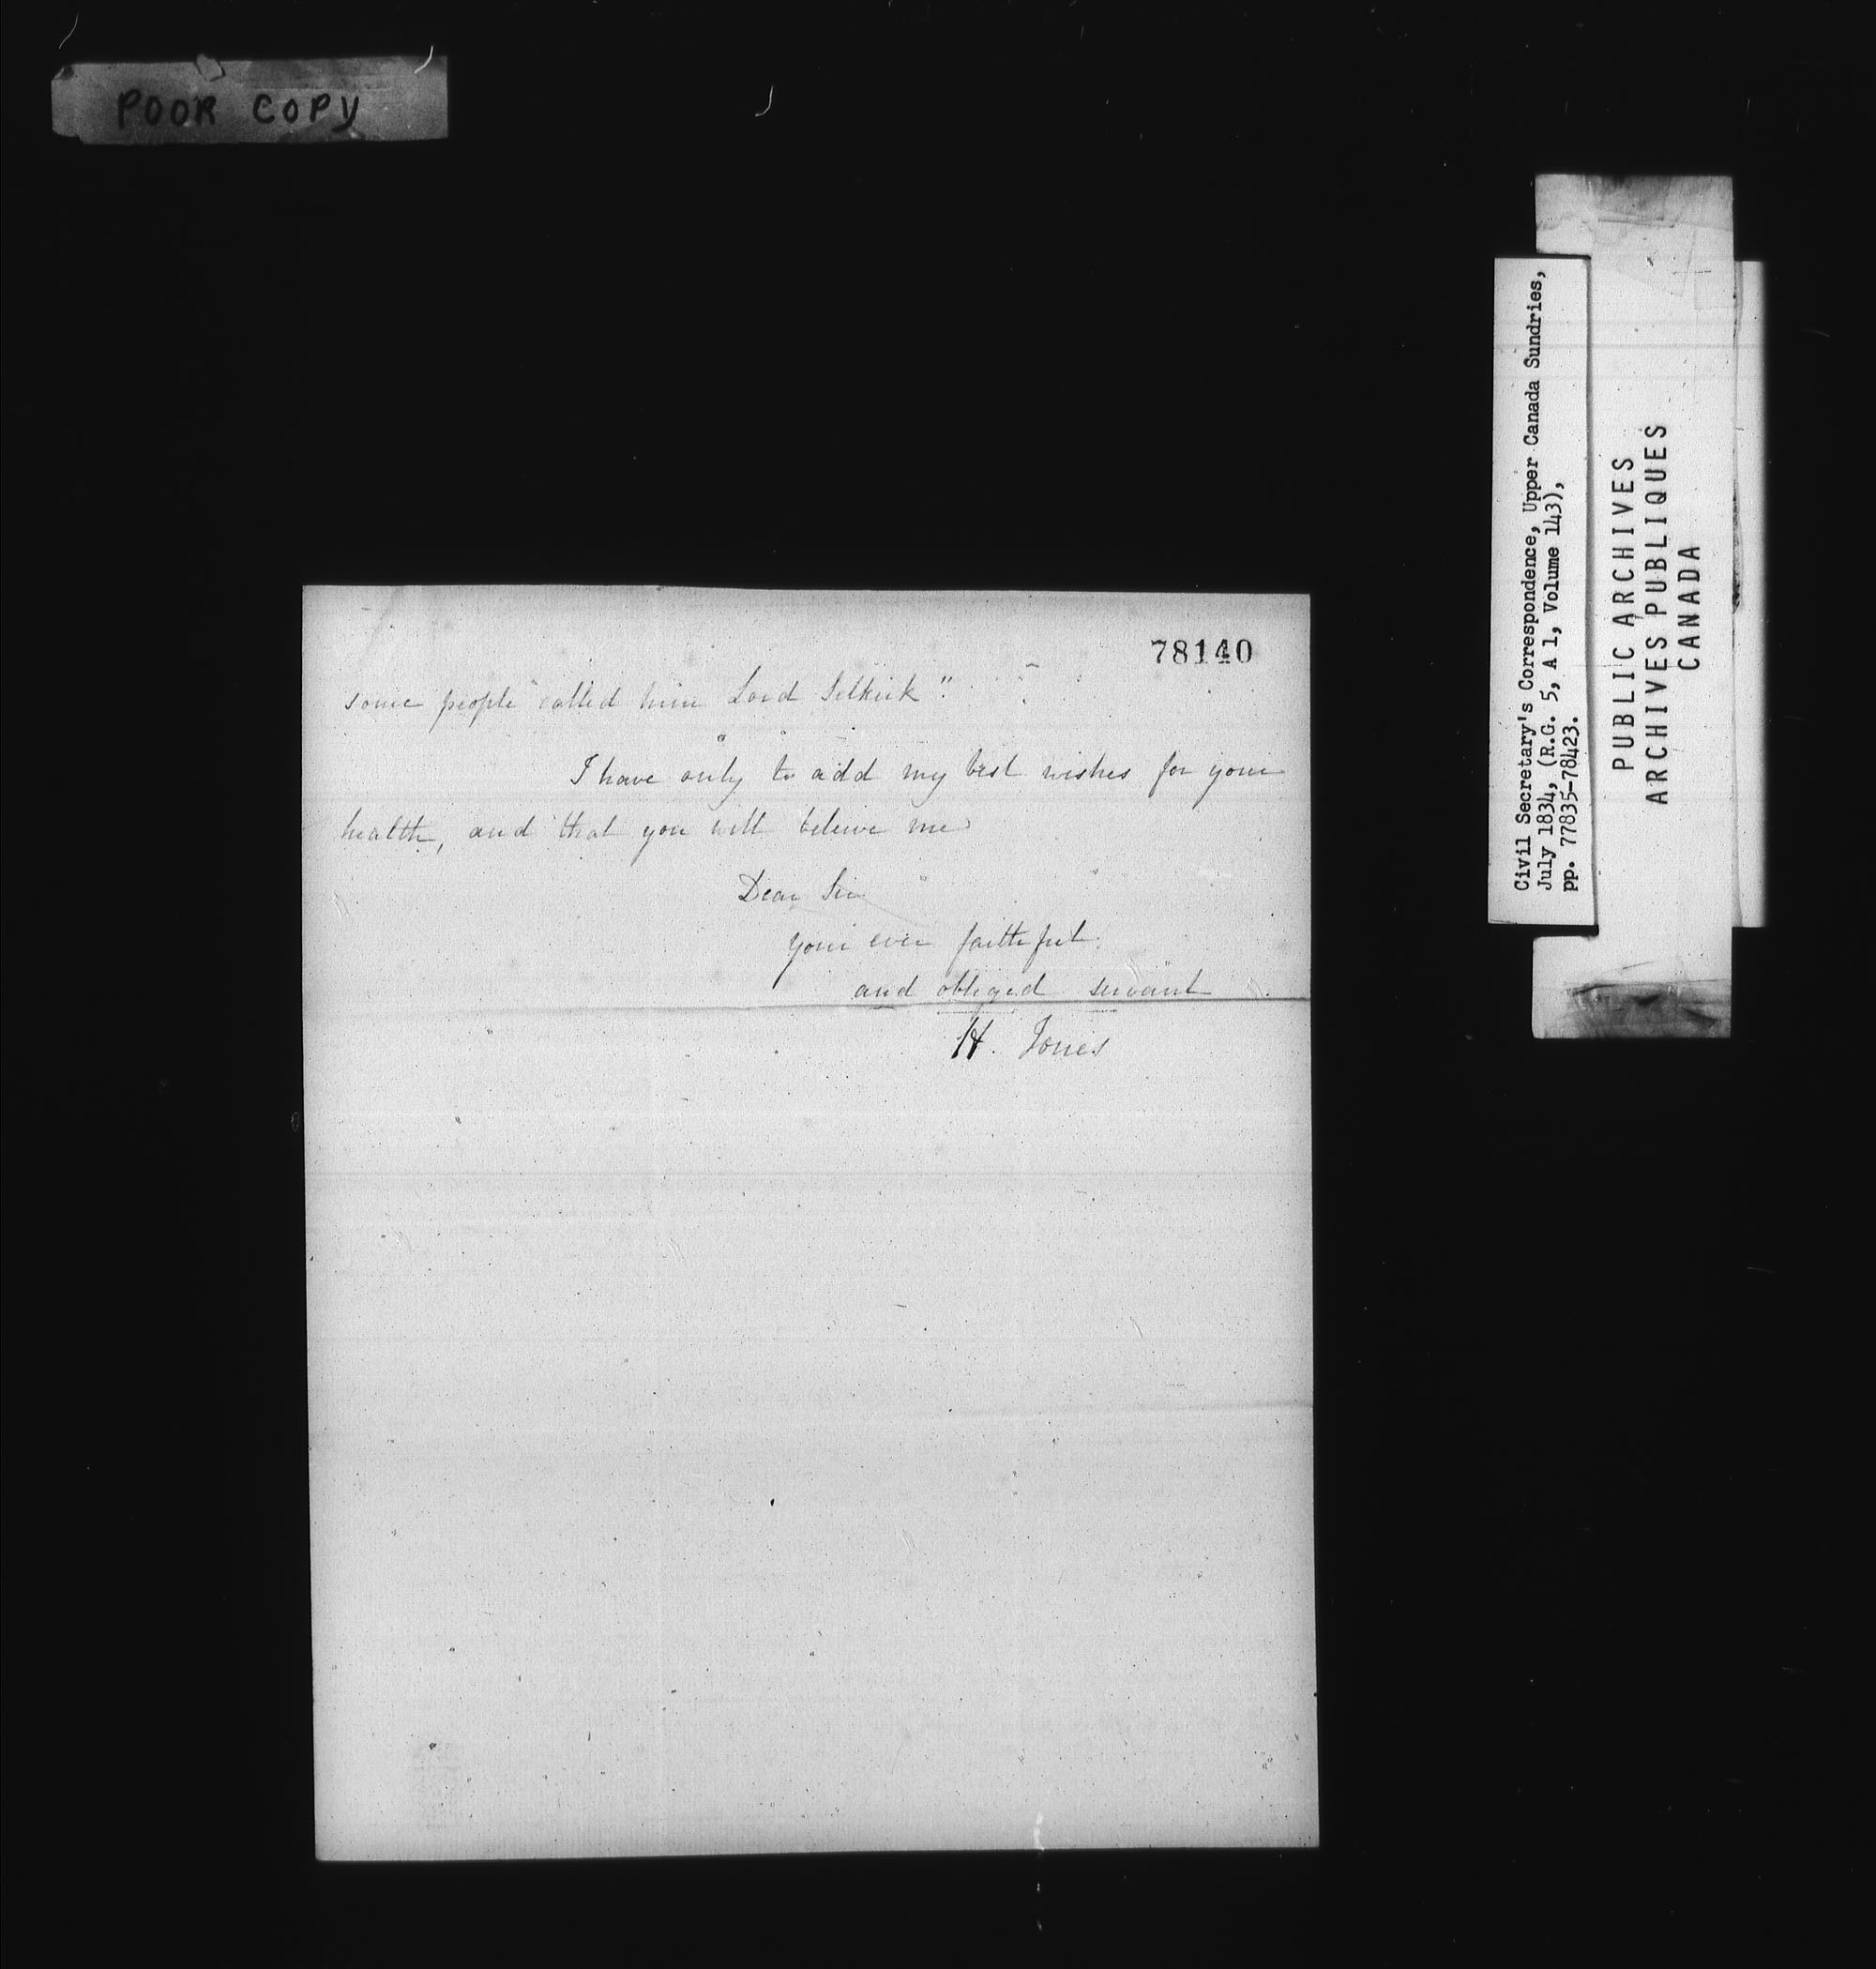 POOR COPY
78140
some people called him Lord Selkirk".
I have only to add my best wishes for your
health, and that you will believe me
Dear Sir
your ever faithful
and obliged servant
H. Jones
Civil Secretary's Correspondence, Upper Canada Sundries,
July 1834, (R.G. 5, A 1, Volume 143),
pp. 77835-78423.
PUBLIC ARCHIVES
ARCHIVES PUBLIQUES
CANADA